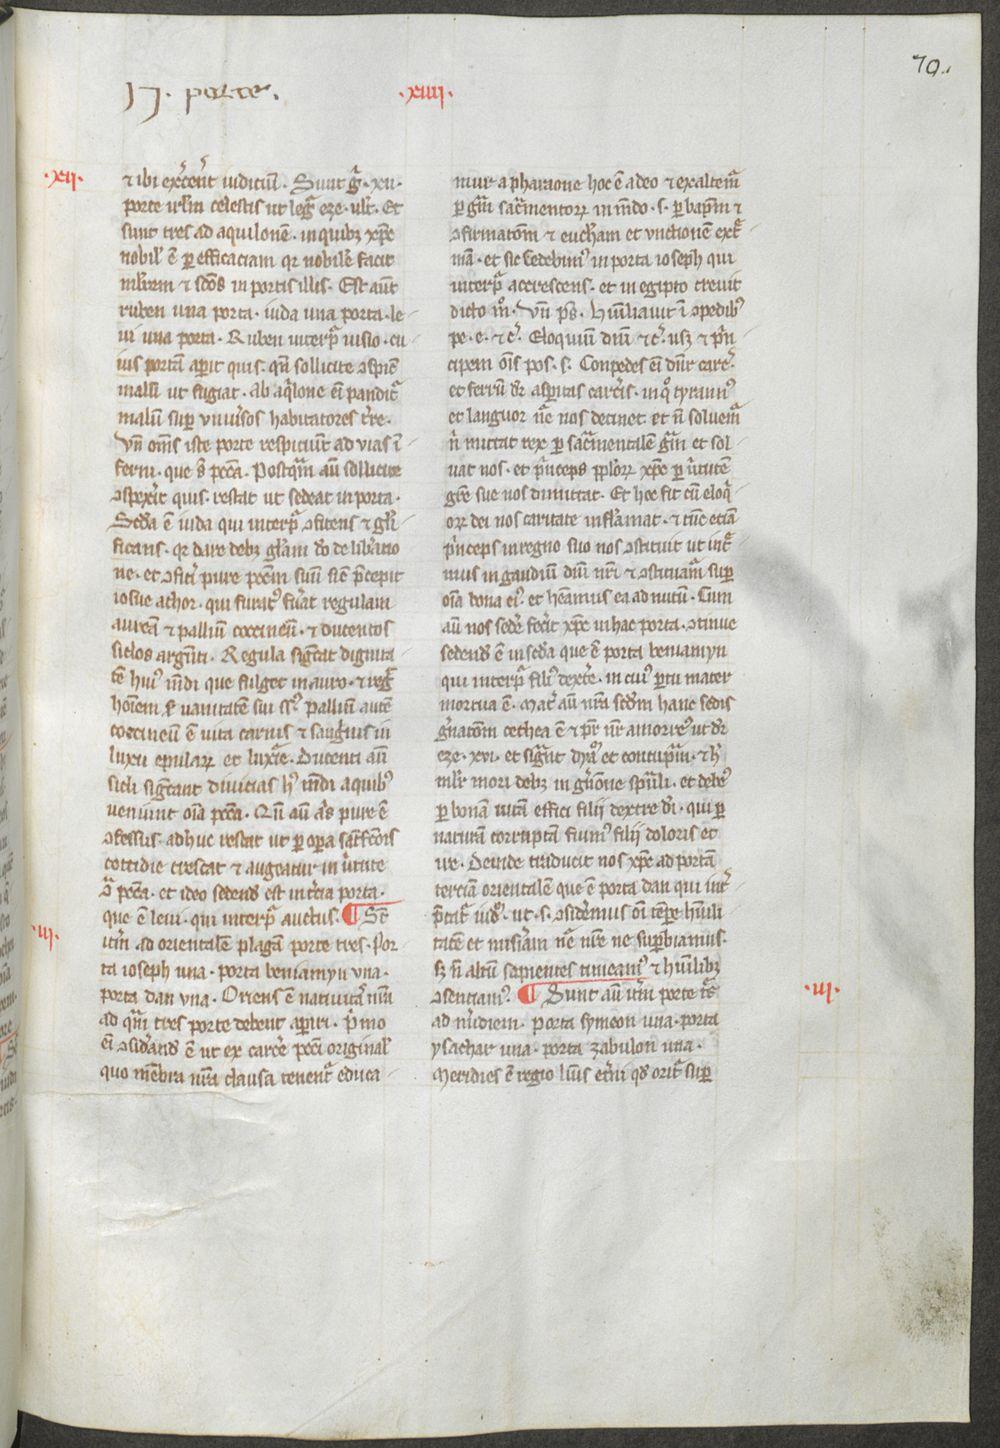 70.
IJ. parte.
.xiiii.
.xii.
⁊ ibi exerc̄ent iudiciū. Sunt g̃. xii.
porte ir̃lm celestis ut leg̃ eze. ult̃. Et
sunt tres ad aquilonē. in quibꝫ xp̄c
nobil' ē ꝑ efficaciam qr nobile facit
in portis illis. Est aūt
ruben una porta. iuda una porta. le-
ui una porta. Ruben interp̃ uisio. cu-
ius portā aꝑit quis. qn̄ sollicite ꝯspicit
malū ut fugiat. Ab aq̃lone ei pandit̃
malū suꝑ vniũsos habitatores tr̃e.
Vn̄ om̄s iste porte respiciūt ad vias ī
ferni. que s̄ pc̄cā. Postq̃m aū sollicite
ꝯspexit quis. restat ut sedeat in porta.
Sc̄da ē iuda qui interp̃ ꝯfitens ⁊ gl'i
ficans. qr dare debꝫ gl'am do de lib̃atio
ne. et ꝯfit̃ pure pc̄cm suū sic p̃cepit
iosue achor. qui furat᷒ fũat regulam
aureā ⁊ palliū coccineū. ⁊ ducentos
siclos arg̃nti. Regula sig̃cat dignita-
tē hui᷒ mūdi que fulget in auro. ⁊ reg̃
hoīem ẜ vanitatē sui ẜẜ᷒ Palliū autē
coccineū ē uita carnis ⁊ sang̃nis in
luxu epularꝝ et luxũe. Ducenti aūt
sicli sig̃cant diuicias h᷒ mūdi a quib᷒
veniunt oīa pc̄cā. Qn̄ aū aĩs pure ē
ꝯfessus. adhuc restat ut ꝑ oꝑa
cottidie crescat ⁊ augeatur in ũtute
ꝯ̃ pc̄cā. et ideo sedend᷒ est in t̃cia porta.
que ē leui. qui interp̃ auctus. ¶ St̄
.iii.
it̃m ad orientalē plagā porte tres. Por
ta ioseph una. porta beniamyn una.
porta dan una. Oriens ē natiuitas nr̄a
ad qm̄ tres porte debent aꝑiri. P̃mo
ei ꝯsid̃and᷒ ē ut ex carc̃e pc̄ci original'
quo mēbra nr̄a clausa tenent̃ educa-
mur a pharaone hoc ē a deo ⁊ exaltem̃
ꝑ gr̄am sac̃mentorꝝ in mūdo. s. ꝑ bap̄m ⁊
ꝯfirmatōm ⁊ euch̃am et vnctionē ext̃-
mā. et sic sedebim᷒ in porta ioseph qui
interp̃ accrescens. et in egipto creuit
dicto mͦ. Vn̄ p̄s. Humiliauit ī ꝯpedib᷒
pe. e. ⁊ c̃. Eloquiū dn̄i ⁊ c̃. usꝫ ⁊ p̃n
cipem oīs pos. s. Conpedes eī dn̄r carc̃.
et ferrū dr̄ asꝑitas carc̃is. in qͦ tyrann᷒
et languor nr̄e nos detinet. et n̄ soluem̃
ñ mittat rex ꝑ sac̃mentalē gr̄am et sol-
uat nos. et p̃nceps pp̄lorꝝ xp̄c ꝑ ũtutē
gr̄e sue nos dimittat. Et hoc fit cū eloq̃
orꝝ dei nos caritate inflāmat. ⁊ tūc etiā
p̃nceps in regno suo nos ꝯstituit ut int̃-
mus in gaudiū dn̄i nr̃i ⁊ ꝯstituam̃ suꝑ
oīa bona ei᷒. et heāmus ea ad nutū. Cum
aū nos sed̃e fec̃it xp̄c in hac porta. ꝯtinue
sedend᷒ ē in sc̄da que ē porta beniamyn
qui interp̃ fili᷒ dext̃e. in cui᷒ ꝑtu mater
mortua ē. Mat̃ aū nr̄a sc̄dm hanc sedis
g̃natōm cethea ē ⁊ pr̃ nr̃ amorre᷒ ut dr̄
eze. xvi. et sig̃nt dyā᷒ et ⁊ h'
mlr̃ mori debꝫ in g̃nōne sp̄uali. et deb᷒
ꝑ bonā uitā effici filii dextre di. qui ꝑ
naturā corruptā fuim᷒ filii doloris et
ire. Deinde traducit nos xp̄c ad portā
terciā orientalē que ē porta dan qui int̃-
p̃tat̃ iud᷒. ut. s. ꝯsid̃emus oī tēꝑe hūili
tatē et miseriam nr̄e ne suꝑbiamus.
sꝫ n̄ altū sapientes timeam᷒ ⁊ hūilibꝫ
ꝯsentiam᷒. ¶ Sunt aū it̃m porte tr̄s
.iii.
ad m̃idiem. Porta symeon una. porta
ysachar una. porta zabulon una.
Meridies ē regio luīs et̃ni qd̄ orit̃ suꝑ